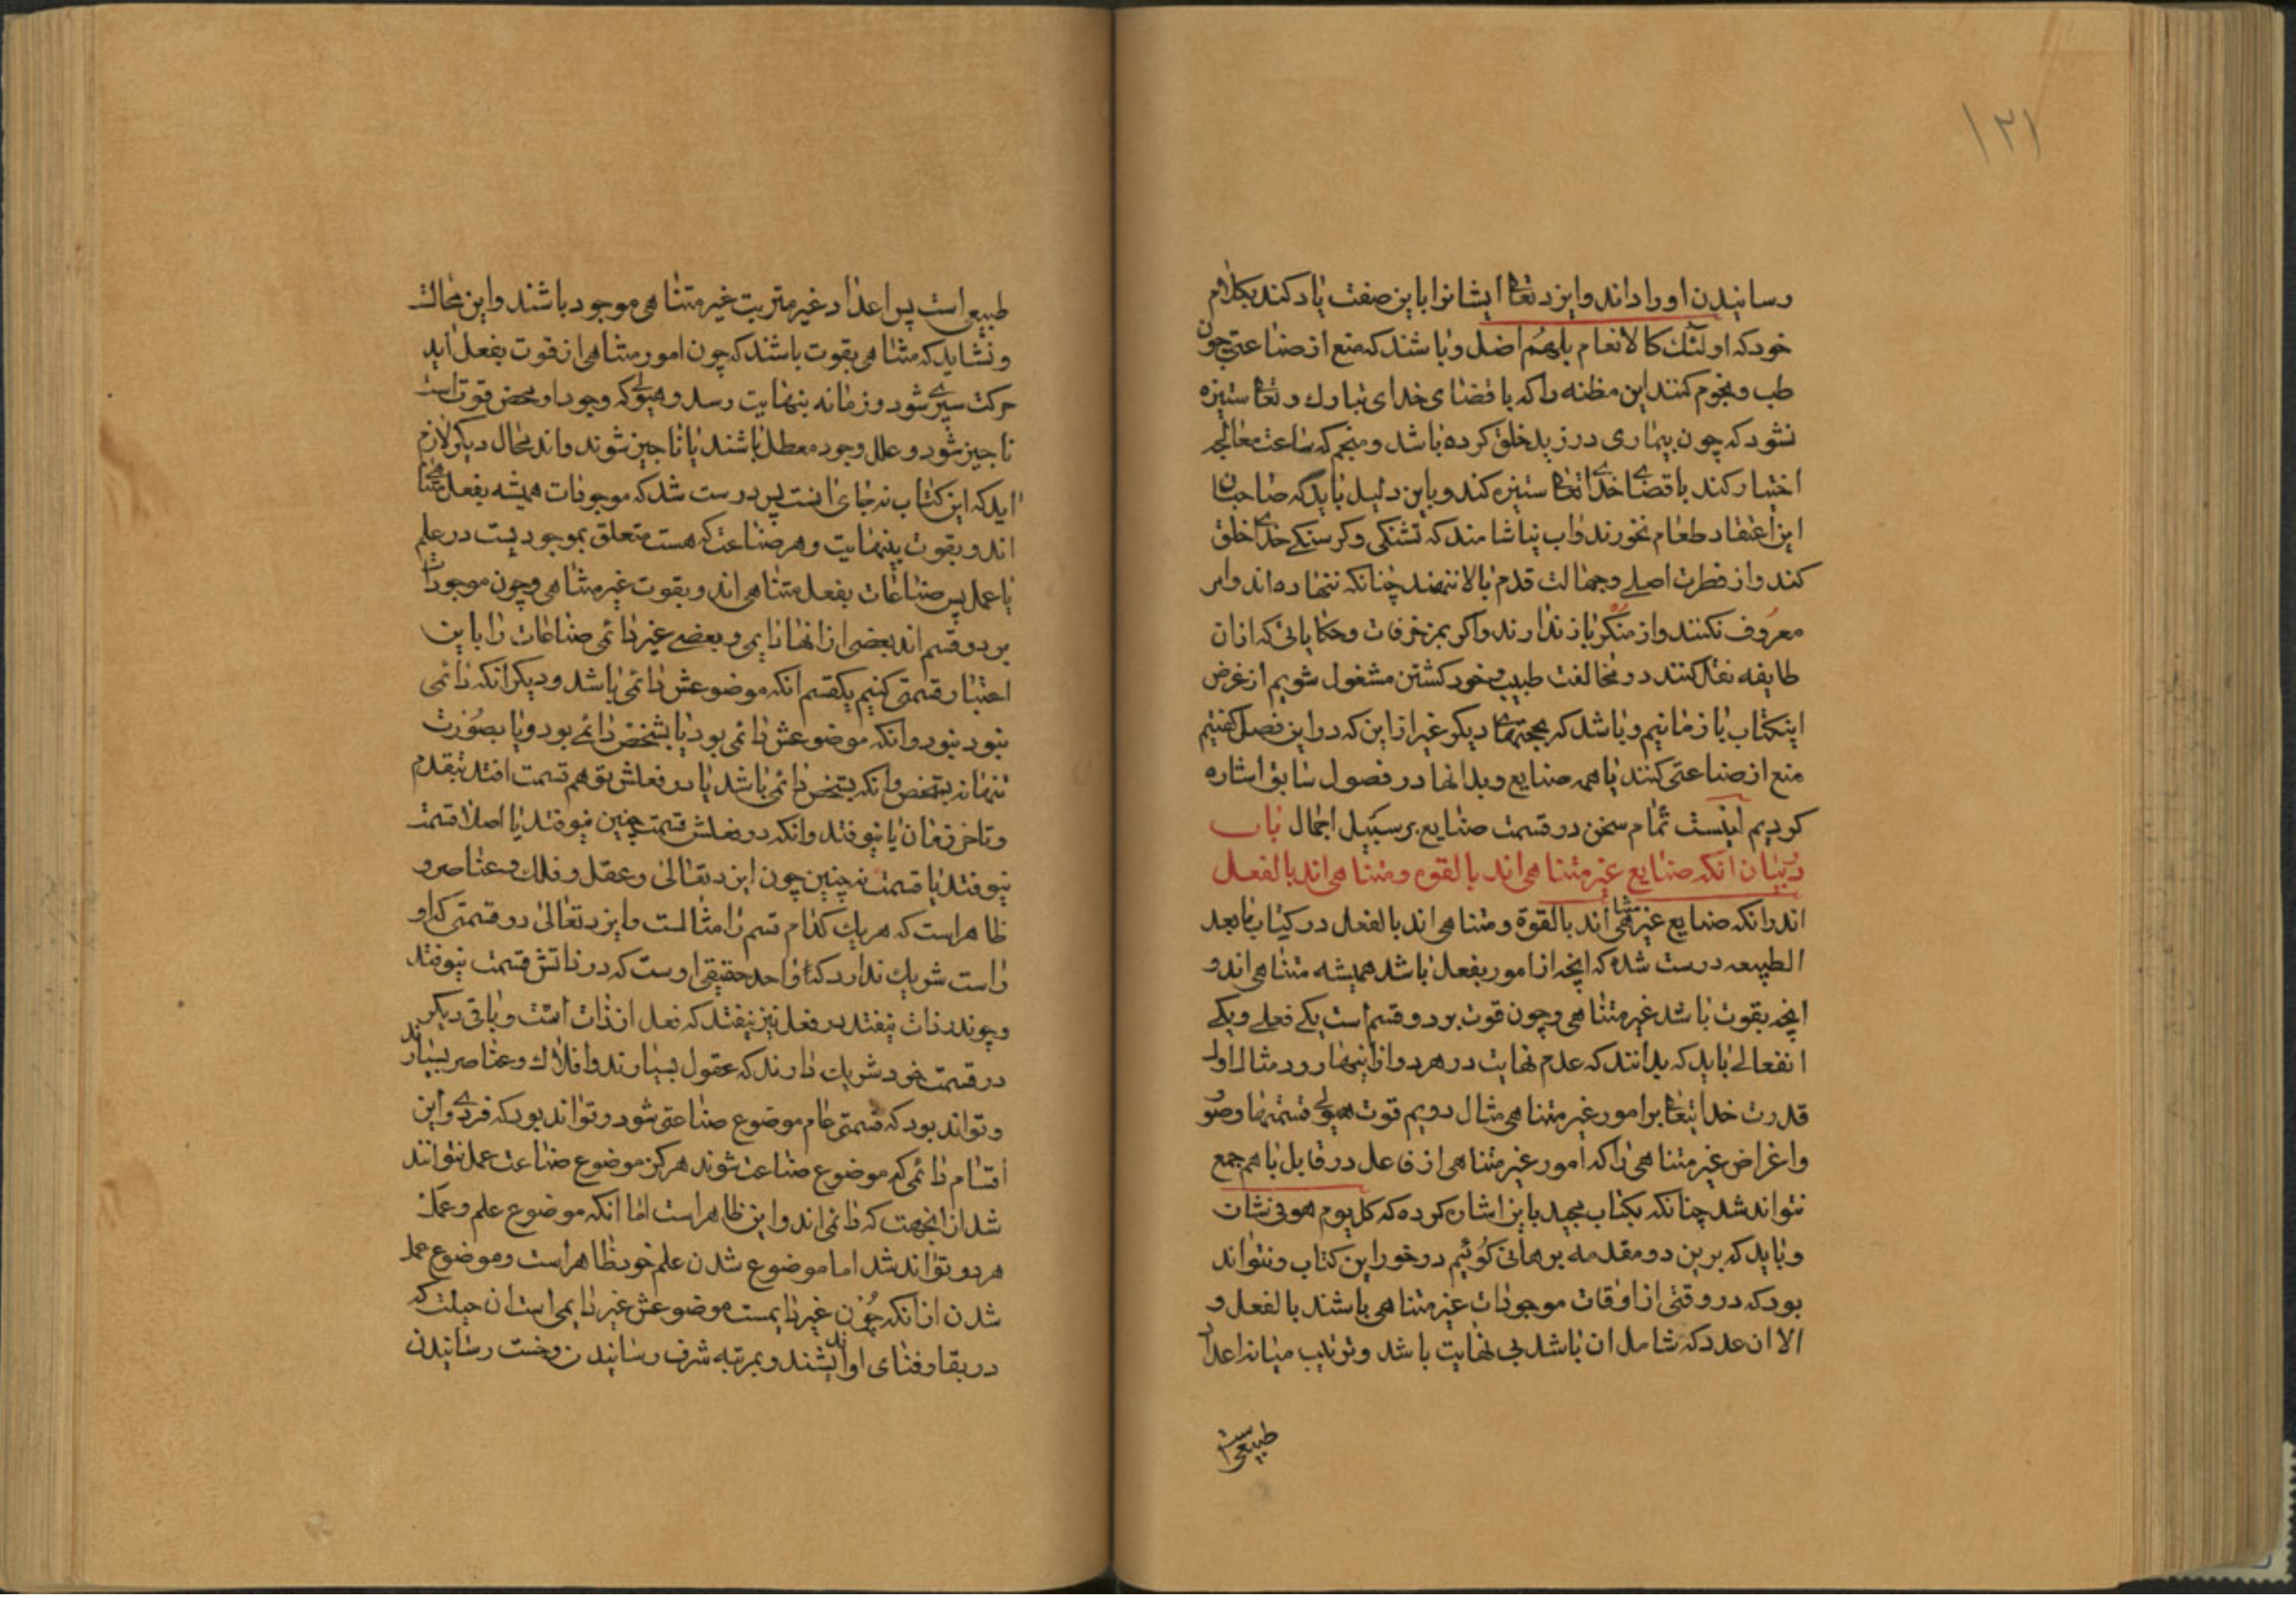 ۱۲۱
رسانیدن او را داند و ایزد تعالی ایشانرا باین صفت یاد کند بکلام
خود که اولئک کالانعام بل هم اضل و باشند که منع از صناعتی چون
طب و نجوم کنند این مظنه را که با قضای خدای تبارک و تعالی ستیزه
نشود که چون بیماری در زید خلق کرده باشد و منجم که ساعت معالجه
اختیار کند با قضای خدای تعالی ستیزه کند و باین دلیل باید که صاحبان
این اعتقاد طعام نخورند و اب نیاشامند که تشنگی و کرسنکی خدای خلق
کند و از فطرت اصلی و جهالت قدم بالا ننهند چنانکه ننهاده اند و امر
معروف نکنند و از منکر باز ندارند و اکر بمزخرفات و حکایاتی که ازان
طایفه نقل کنند در مخالفت طبیب و خود کشتن مشغول شویم از غرض
اینکتاب باز مانیم و باشد که بحجتهای دیکر غیر از این که در این فصل کفتیم
منع از صناعتی کنند یا همه صنایع و بدانها در فصول سابق اشاره
کردیم اینست تمام سخن در قسمت صنایع بر سبیل اجمال باب
در بیان انکه صنایع غیر متناهی اند بالقوه و متناهی اند بالفعل
اندرانکه صنایع غیر متناهی اند بالقوة و متناهی اند بالفعل در کتاب مابعد
الطبیعه درست شده که انچه از امور بفعل باشد همیشه متناهی اند و
انچه بقوت باشد غیر متناهی و چون قوت بر دو قسم است یکی فعلی و یکی
انفعالی باید که بدانند که عدم نهایت در هر دو از اینها رود مثال اول
قدرت خدایتعالی بر امور غیر متناهی مثال دویم قوت هیولی قسمتها و صور
و اغراض غیر متناهی را که امور غیر متناهی از فاعل در قابل با هم جمع
نتواند شد چنانکه بکتاب مجید باین اشارت کرده که کل یوم هو فی شان
و باید که برین دو مقدمه برهانی کوئیم درخور این کتاب و نتواند
بود که در وقتی از اوقات موجودات غیر متناهی باشند بالفعل و
الا ان عدد که شامل ان باشد بی نهایت باشد و ترتیب میانه اعداد
طبیعی است
طبیعی است پس اعداد غیر مترتبت غیر متناهی موجود باشند و این محالست
و نشاید که متناهی بقوت باشند که چون امور متناهی از قوت بفعل اید
حرکت سپری شود و زمانه بنهایت رسد و هیولی که وجود او محض قوت است
ناچیز شود و علل وجود معطل باشند یا ناچیز شوند و اند محال دیکر لازم
اید که این کتاب نه جای انست پس درست شد که موجودات همیشه بفعل متناهی
اند و بقوت بینهایت و هر صناعت که هست متعلق بموجودیست در علم
یا عمل پس صناعات بفعل متناهی اند و بقوت غیر متناهی و چون موجودات
بر دو قسم اند بعضی از انها دایمی و بعضی غیر دائمی صناعات را باین
اعتبار قسمتی کنیم یکقسم انکه موضوعش دائمی باشد و دیکر انکه دائمی
نبود نبود و انکه موضوعش دائمی بود یا بشخص دائمی بود و یا بصورت
تنها نه بشخص و انکه بشخص دائمی باشد یا در فعلش بوهم قسمت افتد بتقدم
و تاخر زمان یا نیوفتد و انکه در فعلش قسمت چنین نیوفتد یا اصلا قسمت
نیوفتد یا قسمت نه چنین چون ایزد تعالی و عقل و فلک و عناصر و
ظاهر است که هر یک کدام قسم را مثالست و ایزد تعالی در قسمتی که او
راست شریک ندارد که واحد حقیقی اوست که در ذاتش قسمت نیوفتد
و چون در ذات نیفتد در فعل نیز نیفتد که فعل از ذات است و باقی دیکر
در قسمت خود شریک دارند که عقول بسیارند و افلاک و عناصر بسیارند
و تواند بود که قسمتی عام موضوع صناعتی شود و تواند بود که فردی و این
اقسام دائمی که موضوع صناعت شوند هرکز موضوع صناعت عمل نتوانند
شد ازانجهت که دائمی اند و این ظاهر است اما انکه موضوع علم و عمل
هر دو تواند شد اما موضوع شدن علم خود ظاهر است و موضوع عمل
شدن از انکه چون غیر دایمست موضوعش غیر دایمی است ان حیلت که
در بقا و فنای او اندیشند و بمرتبه شرف رسانیدن و خست رسانیدن